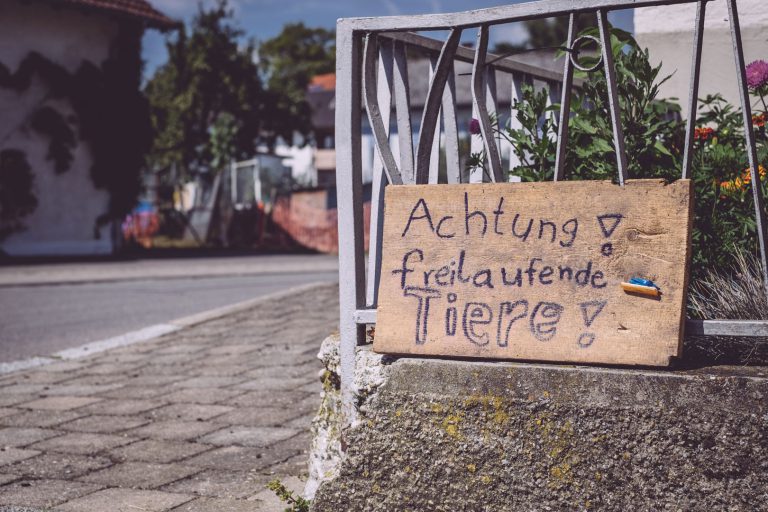 Achtung!
freilaufende
Tiere!